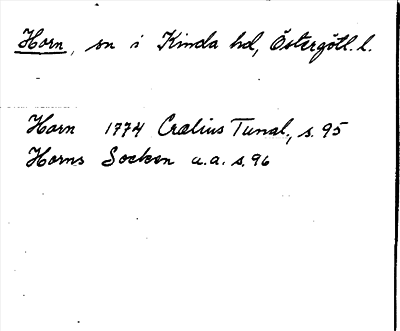 Horn, sn i Kinda hd, Östergötl. l.
Horn 1774 Crælius Tunal., s. 95
Horns Socken u.a. s. 96